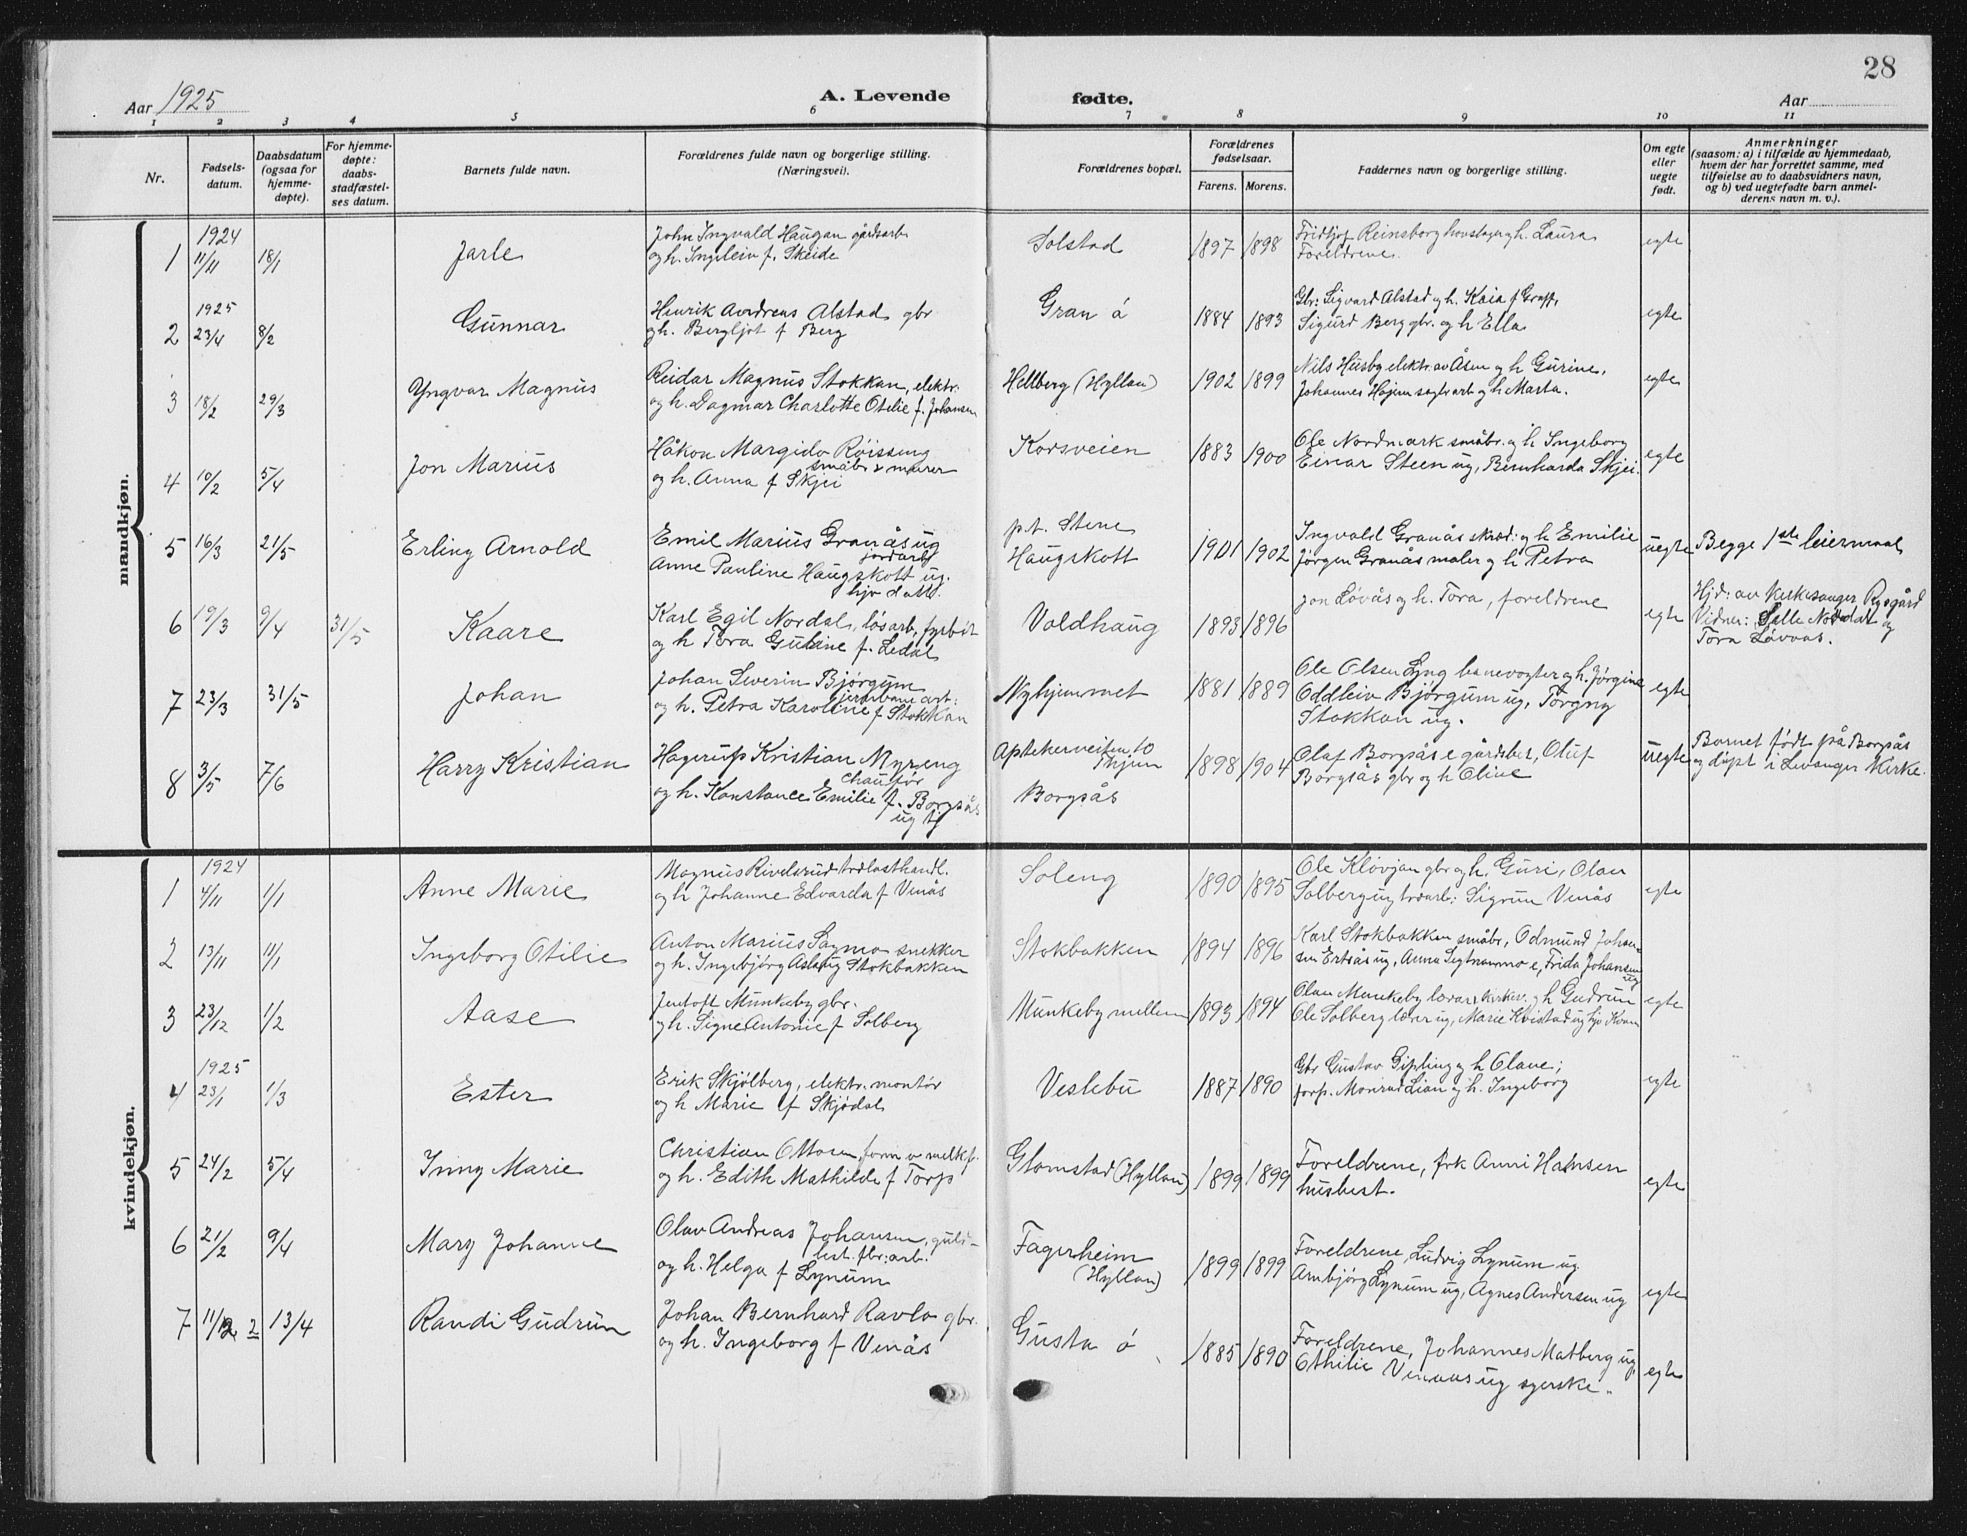 28
Aar 1925
A. Levende
fødte.
Aar
1 2 3 4 5 6 7 8 9 10 11
Nr.
Fødsels-
datum.
Daabsdatum
(ogsaa for
hjemme-
døpte).
For hjemme-
døpte:
daabs-
stadfæstel-
ses datum.
Barnets fulde navn.
Forældrenes fulde navn og borgerlige stilling.
(Næringsvei).
Forældrenes bopæl.
Forældrenes
fødselsaar.
Farens. Morens.
Faddernes navn og borgerlige stilling.
Om egte
eller
uegte
født.
Anmerkninger
(saasom: a) i tilfælde av hjemmedaab,
hvem der har forrettet samme, med
tilføielse av to daabsvidners navn,
og b) ved uegtefødte barn anmel-
derens navn m. v.).
mandkjøn.
1924
1 11/11 18/1 Jarle
John Ingvald Haugan gårdsarb
og h. Ingeleiv f. Skeide
Solstad 1897 1898
Fridtjof Reinsborg h. Laura
Foreldrene.
egte
1925
2 23/4 8/2 Gunnar
Henrik Andreas Alstad gbr
og h. Bergljot f Berg
Gran ø 1884 1893
Gbr: Sigvard Alstad og h. Kaia f Graff,
Sigurd Berg gbr. og h Ella
egte
3 18/2 29/3 Yngvar Magnus
Reidar Magnus Stokkan, elektr.
og h. Dagmar Charlotte Otilie f. Johansen
Hellberg (Hyllan) 1902 1899
Nils Husby elektr. av Åsen og h Gurine,
Johannes Højem sagbr.arb og h Marta.
egte
4 10/2 5/4 Jon Marius
Håkon Margido Røissing
småbr & murer
og h. Anna f Skjei
Korsveien 1883 1900
Ole Nordmark småbr. og h Ingeborg
Einar Steen ug, Bernharda Skjei.
egte
5 16/3 21/5 Erling Arnold
Emil Marius Granås ug
jordarb
Anne Pauline Haugskott ug.
hjv datt.
p.t. Stene
Haugskott 1901 1902
Ingvald Granås skræd. og h Emilie
Jørgen Granås maler og h Petra
uegte
Begge 1ste leiermaal
6 19/3 9/4 31/5 Kaare
Karl Egil Nordal, løsarb, fyrbøt
og h Tora Guline f. Ledal
Voldhaug 1893 1896
Jon Løvås og h. Tora, foreldrene
egte
Hjd: av Kirkesanger Rysgård
Vidner: Salle Nordal og
Tora Løvaas.
7 23/3 31/5 Johan
Johan Severin Bjørgum
jernbanearb:
og h. Petra Karoline f Stokkan
Nyhjemmet 1881 1889
Ole Olsen Lyng banevogter og h. Jørgine
Oddleiv Bjørgum ug, Torgny
Stokkan ug.
egte
8 3/5 7/6 Harry Kristian
Hagerup Kristian Myreng
chauffør
og h. Konstance Emilie f. Borgsås
ug tj
Aptekerveiten 10
Thjem
Borgsås 1898 1904
Olaf Borgsås e gårdsbr, Oluf
Borgsås gbr og h Oline
uegte
Barnet født på Borgsås
og døpt i Levanger Kirke.
kvindekjøn.
1924
1 4/11 1/1 Anne Marie
Magnus Rivelsrud trælasthandl.
og h Johanne Edvarda f Venås
Soleng 1890 1895
Ole Kløvjan gbr og h. Guri, Olav
Solberg ug træarb: Sigrun Venås
egte
2 13/11 11/1 Ingeborg Otilie
Anton Marius Sagmo snekker
og h. Ingebjørg Aslaug Stokbakken
Stokbakken 1894 1896
Karl Stokbakken småbr, Odmund Johan-
sen Ertsås ug, Anna Segtnanmo e, Frida Johansen
ug
egte
3 23/12 1/2 Aase
Jentoft Munkeby gbr.
og h. Signe Antonie f Solberg
Munkeby mellem 1893 1894
Olav Munkeby lærer, kirkev. og h Gudrun
Ole Solberg lærer ug, Marie Kvistad ug hjv Kvam
egte
1925
4 23/1 1/3 Ester
Erik Skjølberg, elektr. montør
og h Marie f Skjødal
Veslebu 1887 1890
Gbr Gustav Gipling og h Olave;
forp. Monrad Lian og h. Ingeborg
egte
5 24/2 5/4 Inny Marie
Christian Ottosen, form v melkf.
og h. Edith Mathilde f Torp
Glomstad (Hyllan) 1899 1899
Foreldrene, frk Anni Hansen
husbest.
egte
6 21/2 9/4 Mary Johanne
Olav Andreas Johansen, guld-
list. fbr: arb.
og h. Helga f Lynum
Fagerheim
(Hyllan) 1899 1899
Foreldrene, Ludvig Lynum ug.
Arnbjørg Lynum ug, Agnes Andersen ug
egte
7 11/2 2 13/4 Randi Gudrun
Johan Bernhard Ravlo gbr.
og h. Ingeborg f Venås
Gusta ø 1885 1890
Foreldrene, Johannes Matberg ug,
Othilie Venaas ug syerske.
egte